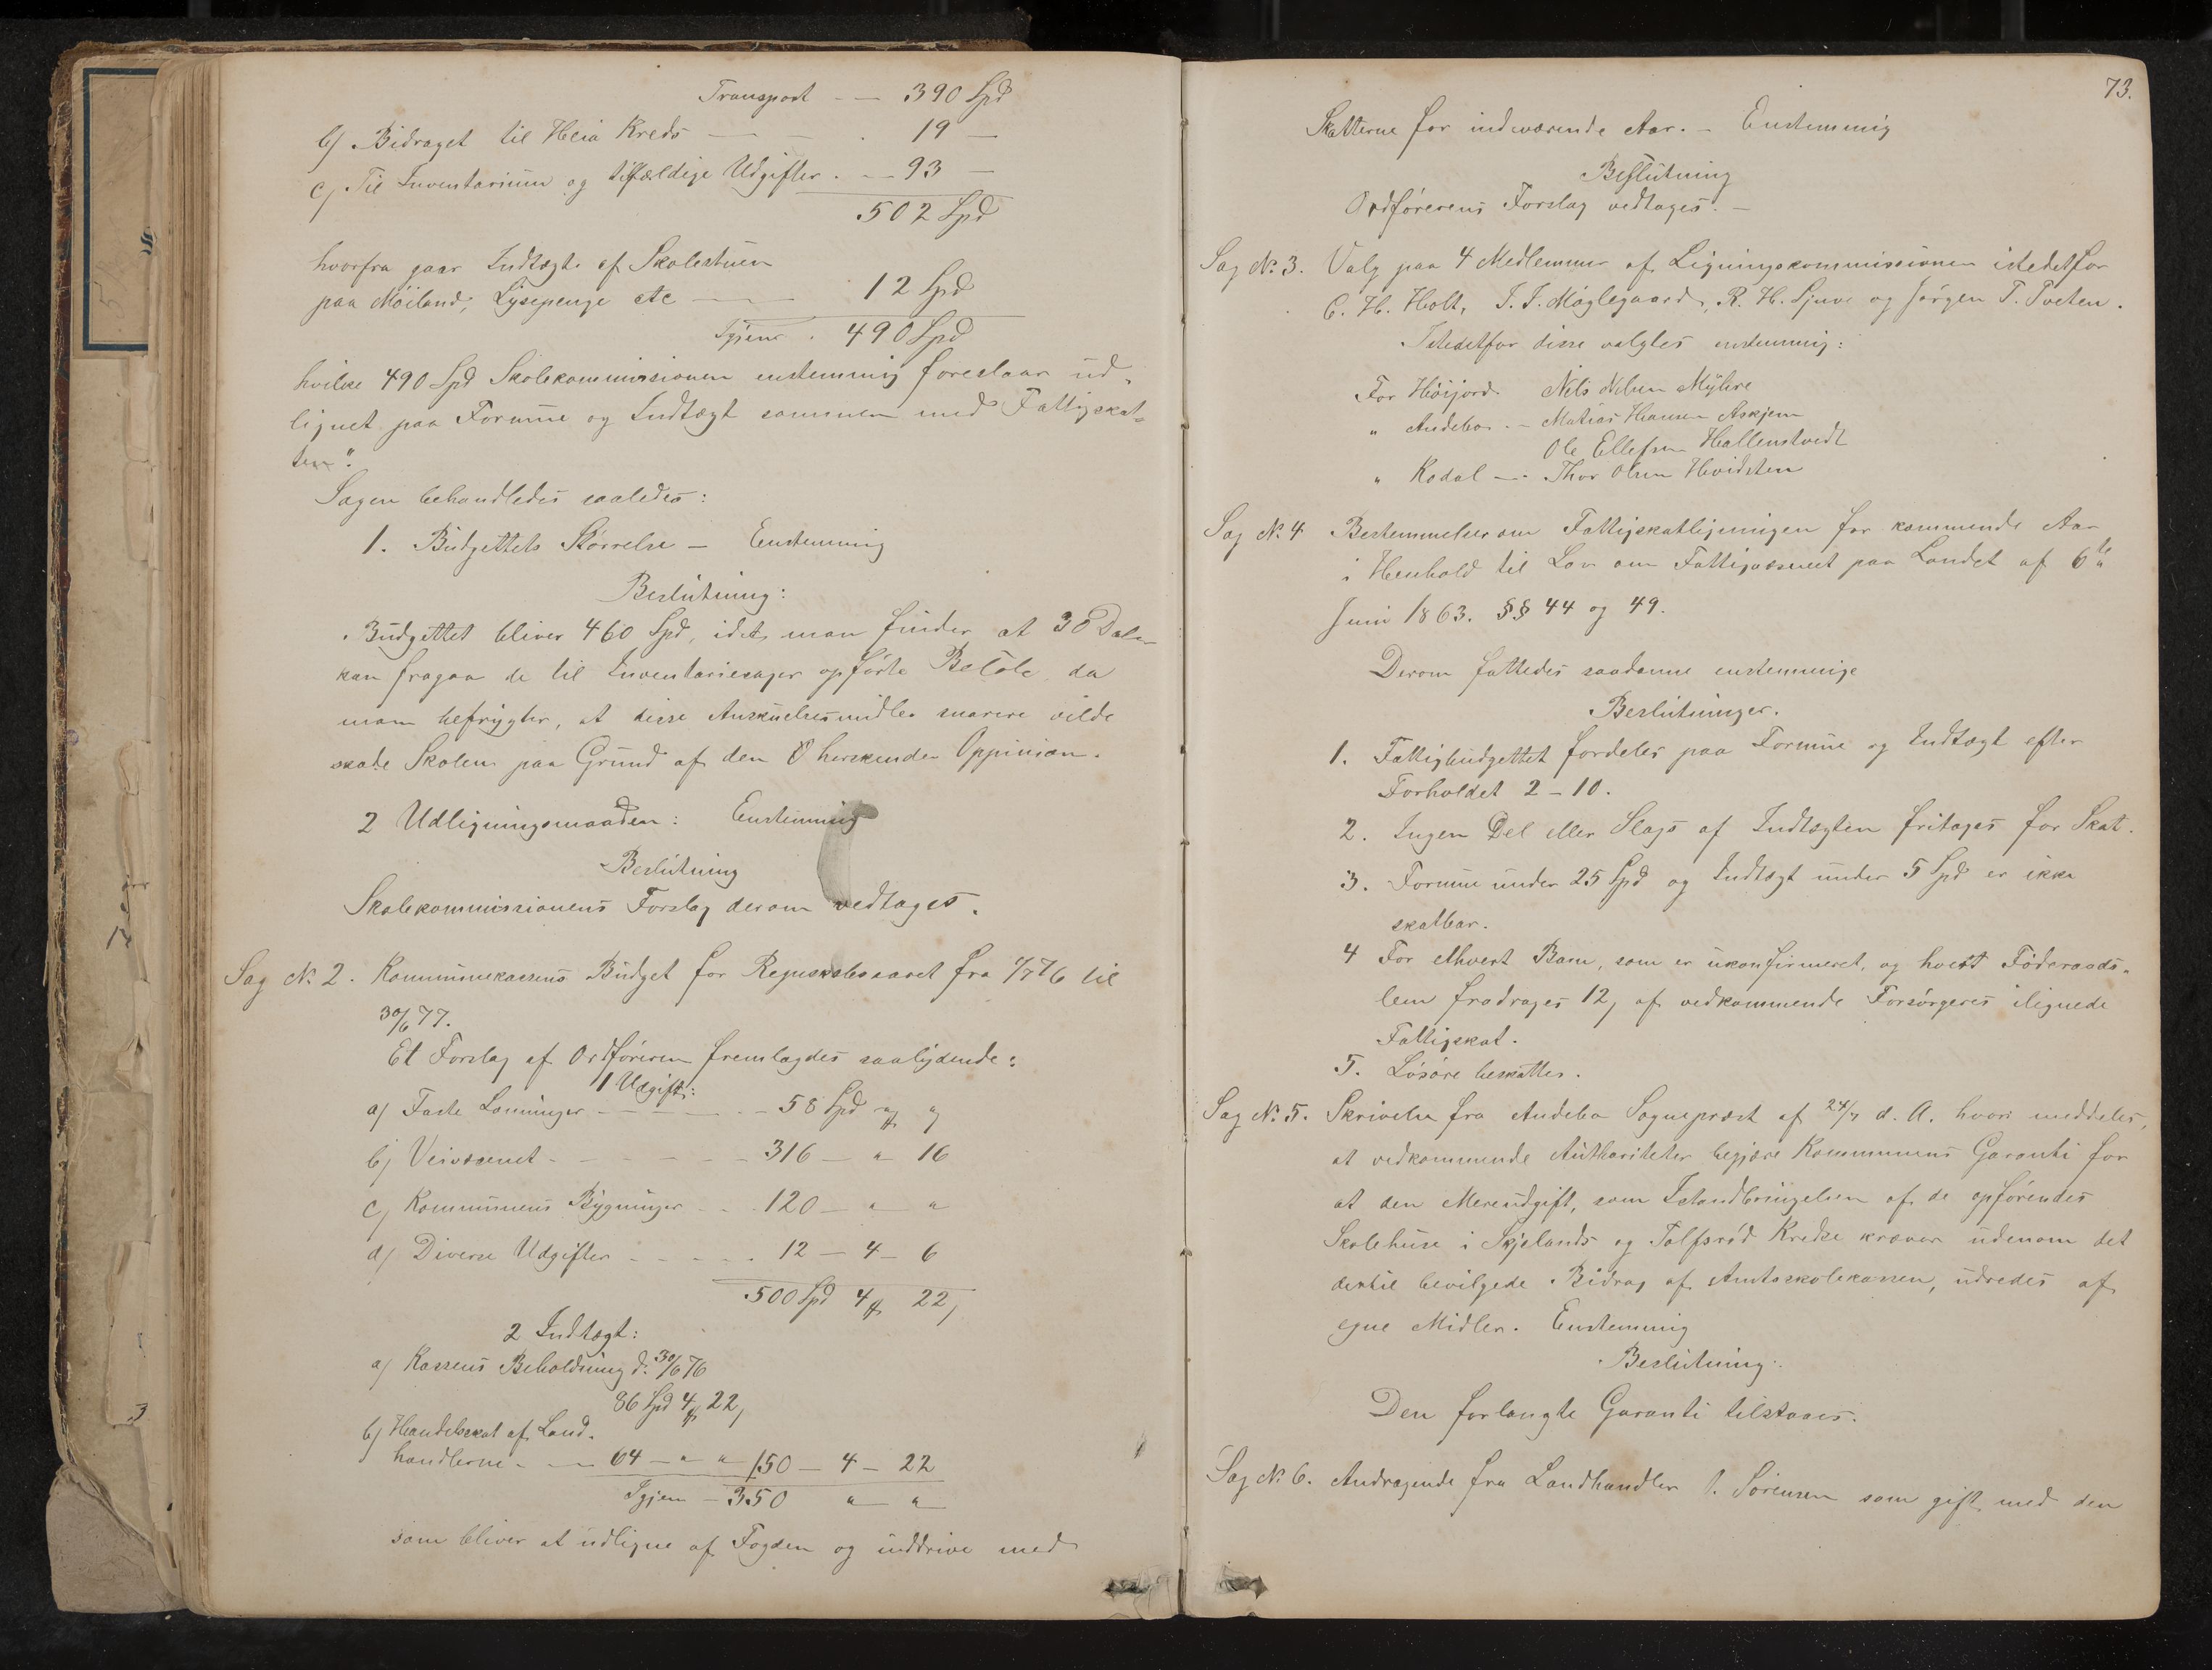 Transport — — 390 Spd
b) Bidraget til Heia Kreds — — . 19 —
c) Til Inventarium og tilfældige Udgifter . — 93 —
502 Spd
hvorfra gaar Indtægt af Skolestuen
paa Møiland, Lysepenge etc — — 12 Spd
Igjen . 490 Spd
hvilke 490 Spd Skolekommissionen enstemmig foreslaar ud„
lignet paa Formue og Indtægt sammen med Fattigskat„
ten".
Sagen behandledes saaledes:
1. Budgettets Størrelse — Enstemmig
Beslutning:
Budgettet bliver 460 Spd, idet man finder at 30 Daler
kan fragaa de til Inventariesager opførte Beløb, da
man befrygter, at disse Anskuelsesmidler snarere vilde
skade Skolen paa Grund af den herskende Oppinion.
2 Udligningsmaaden: Enstemmig
Beslutning
Skolekommissionens Forslag derom vedtages.
Sag No 2. Kommunekassens Budget for Regnskabsaaret fra 1/7 76 til
30/6 77.
Et Forslag af Ordføreren fremlagdes saalydende:
1 Udgift:
a) Faste Lønninger — — — 58 Spd " "
b) Veivæsenet — — — — 316 — " 16
c) Kommunens Bygninger — — 120 — " — "
d) Diverse Udgifter — — — 12 — 4 — 6
500 Spd 4 22
2 Indtægt:
a) Kassens Beholdning d: 30/6 76
86 Spd 4 22
b) Handelsskat af Land-
handlerne — — 64 — " " 150 — 4 — 22
Igjen — 350 " — "
som bliver at udligne af Fogden og inddrive med
73.
Skatterne for indværende Aar. — Enstemmig
Beslutning
Ordførerens Forslag vedtages. —
Sag No 3. Valg paa 4 Medlemmer af Ligningskommissionen istedetfor
C. H. Holt, J. J. Møglegaard, R. H. Ljuve og Jørgen T. Tveten.
Istedetfor disse valgtes enstemmig:
For Høijord. Nils Nilsen Myhre
" Andebo . — Matias Hansen Askjem
Ole Ellefsen Hallenstvedt
" Kodal — . Thor Olsen Hvidsten
Sag No 4 Bestemmelser om Fattigskatligningen for kommende Aar
i Henhold til Lov om Fattigvæsenet paa Landet af 6te
Juni 1863. §§ 44 og 49.
Derom fattedes saadanne enstemmige
Beslutninger.
1. Fattigbudgettet fordeles paa Formue og Indtægt efter
Forholdet 2 — 10.
2. Ingen Del eller Slags af Indtægten fritages for Skat.
3. Formue under 25 Spd og Indtægt under 5 Spd er ikke
skatbar.
4 For ethvert Barn, som er ukonfirmeret, og hvert Føderaads„
lem fradrages 12, af vedkommende Forsørgeres ilignede
Fattigskat.
5. Løsøre beskattes.
Sag No 5. Skrivelse fra Andebo Sognepræst af 24/7 d. A. hvori meddeles,
at vedkommende Authoriteter begjære Kommunens Garanti for
at den Merudgift, som Istandbringelsen af de opførendes
Skolehuse i Skjelands og Tolfsrød Kredse kræver udenom det
dertil bevilgede Bidrag af Amtsskolekassen, udredes af
egne Midler. Enstemmig
Beslutning:
Den forlangte Garanti tilstaaes.
Sag No 6. Andragende fra Landhandler Sørensen som gift med den